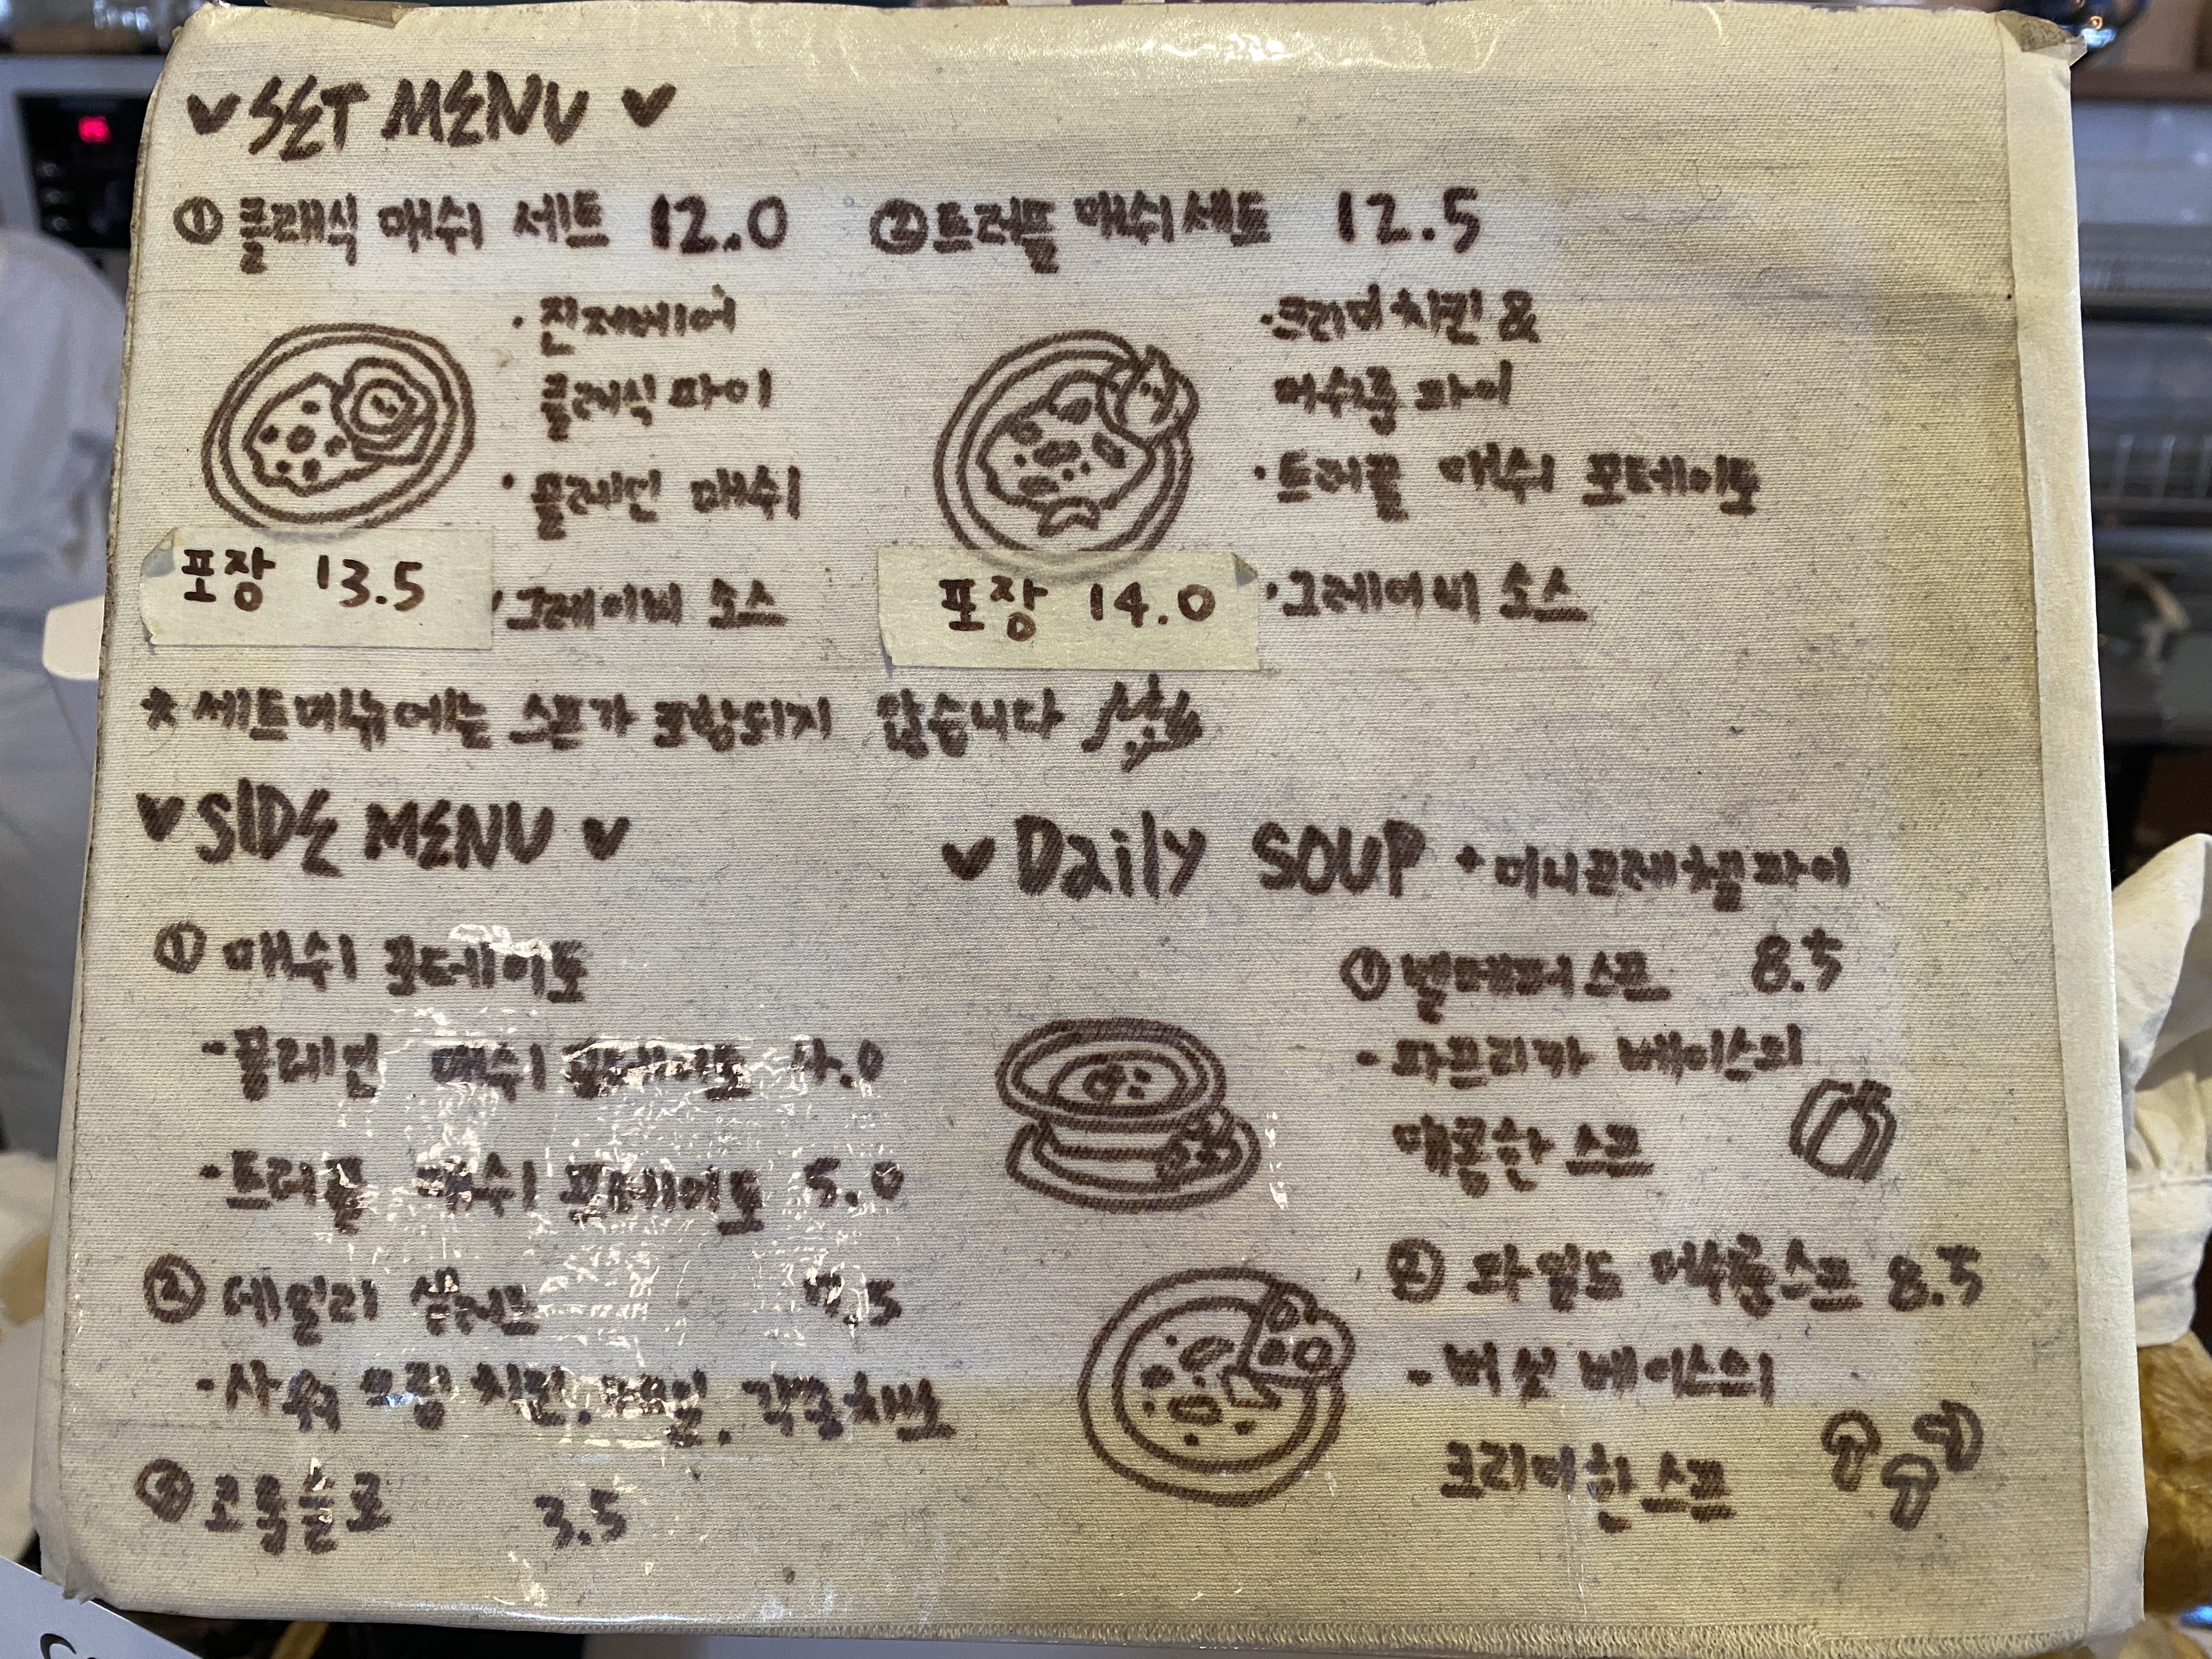 SET MENU
① 클래식 매쉬 세트 12.0
· 진저비어
클래식 파이
· 플레인 매쉬
· 그레이비 소스
포장 13.5
② 트러플 매쉬 세트 12.5
· 크리미 치킨 &
머쉬룸 파이
· 트러플 매쉬 포테이토
· 그레이비 소스
포장 14.0
* 세트메뉴에는 스프가 포함되지 않습니다
SIDE MENU
① 매쉬 포테이토
- 플레인 매쉬 포테이토 4.0
- 트러플 매쉬 포테이토 5.0
② 데일리 샐러드
- 사워 크림 치킨.
3.5
Daily SOUP + 미니 프레첼 파이
① 벨페퍼 스프 8.5
- 파프리카 베이스의
매콤한 스프
② 와일드 머쉬룸 스프 8.5
- 버섯 베이스의
크리미한 스프